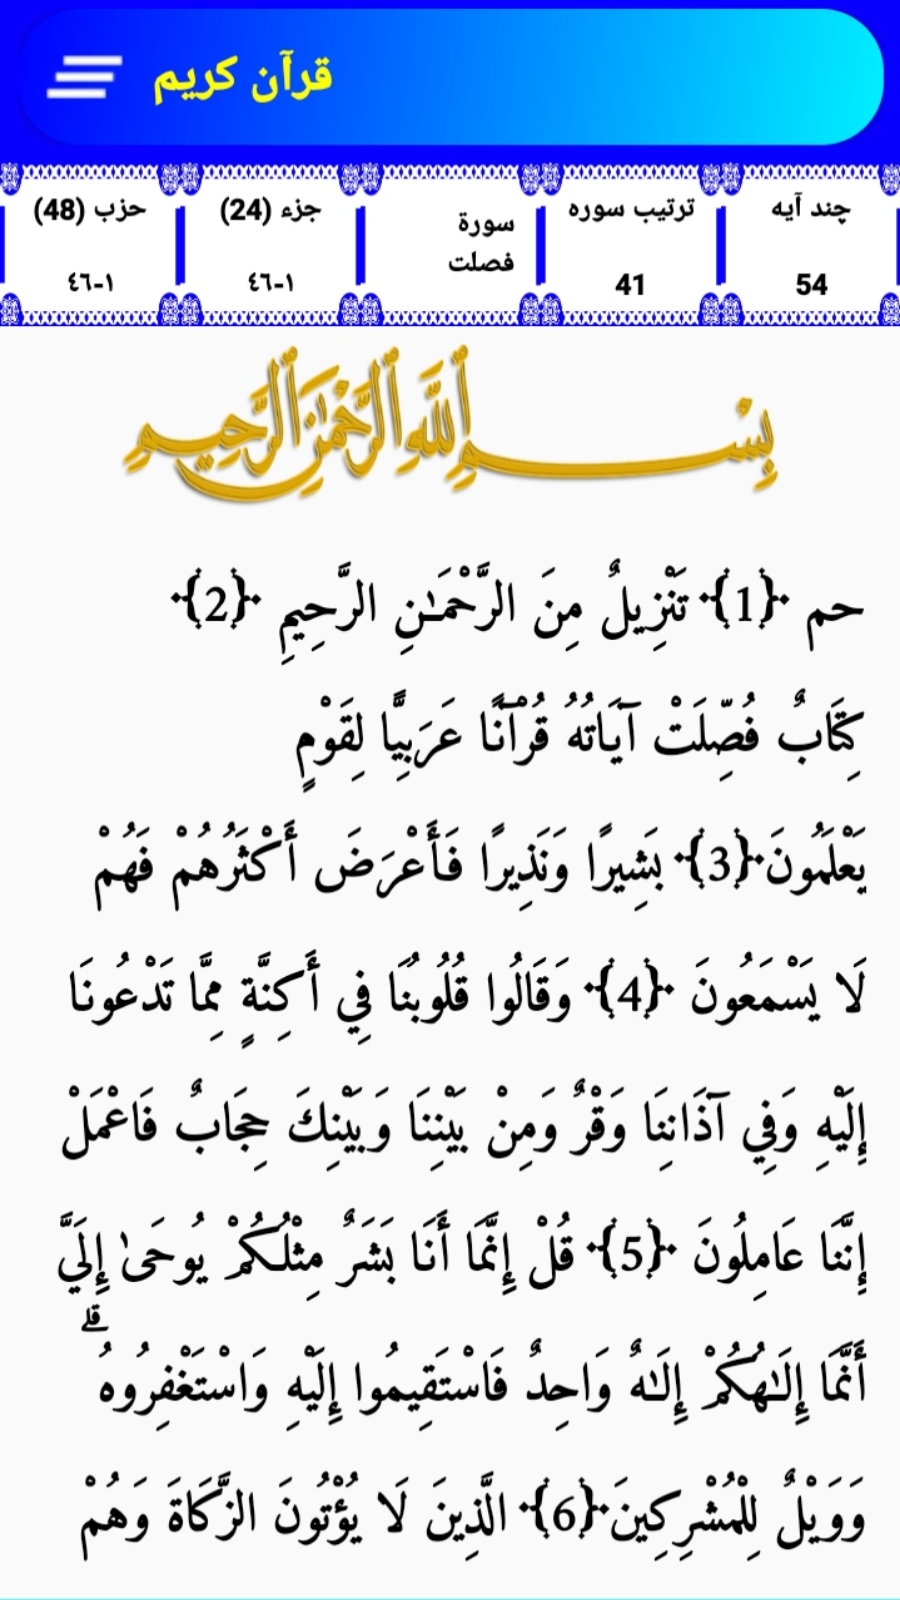 قرآن کریم
چند آیه
54
ترتیب سوره
41
سورة
فصلت
جزء (24)
١-٤٦
حزب (48)
١-٤٦
بِسْمِ ٱللَّهِ ٱلرَّحْمَٰنِ ٱلرَّحِيمِ
حم ﴿1﴾ تَنْزِيلٌ مِنَ الرَّحْمَـٰنِ الرَّحِيمِ ﴿2﴾
كِتَابٌ فُصِّلَتْ آيَاتُهُ قُرْآنًا عَرَبِيًّا لِقَوْمٍ
يَعْلَمُونَ﴿3﴾ بَشِيرًا وَنَذِيرًا فَأَعْرَضَ أَكْثَرُهُمْ فَهُمْ
لَا يَسْمَعُونَ ﴿4﴾ وَقَالُوا قُلُوبُنَا فِي أَكِنَّةٍ مِمَّا تَدْعُونَا
إِلَيْهِ وَفِي آذَانِنَا وَقْرٌ وَمِنْ بَيْنِنَا وَبَيْنِكَ حِجَابٌ فَاعْمَلْ
إِنَّنَا عَامِلُونَ ﴿5﴾ قُلْ إِنَّمَا أَنَا بَشَرٌ مِثْلُكُمْ يُوحَىٰ إِلَيَّ
أَنَّمَا إِلَـٰهُكُمْ إِلَـٰهٌ وَاحِدٌ فَاسْتَقِيمُوا إِلَيْهِ وَاسْتَغْفِرُوهُ ۗ
وَوَيْلٌ لِلْمُشْرِكِينَ﴿6﴾ الَّذِينَ لَا يُؤْتُونَ الزَّكَاةَ وَهُمْ